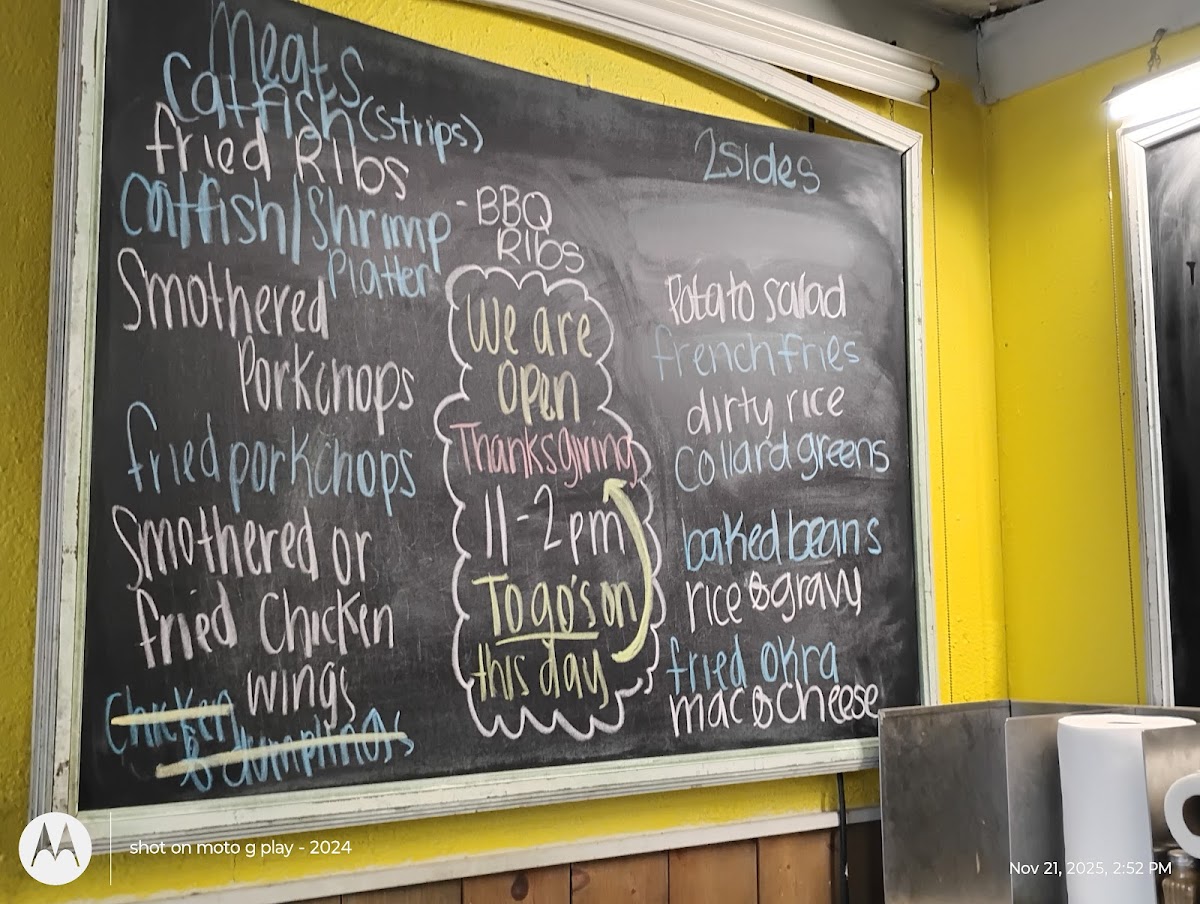 Meats
Catfish (strips)
fried Ribs
Catfish/Shrimp
Platter
Smothered
Porkchops
fried porkchops
Smothered or
fried Chicken
wings
Chicken
& dumplings
- BBQ
Ribs
We are
open
Thanksgiving
11-2pm
To go's on
this day
2 Sides
Potato salad
french fries
dirty rice
Collard greens
baked beans
rice & gravy
fried okra
mac & cheese
shot on moto g play - 2024
Nov 21, 2025, 2:52 PM